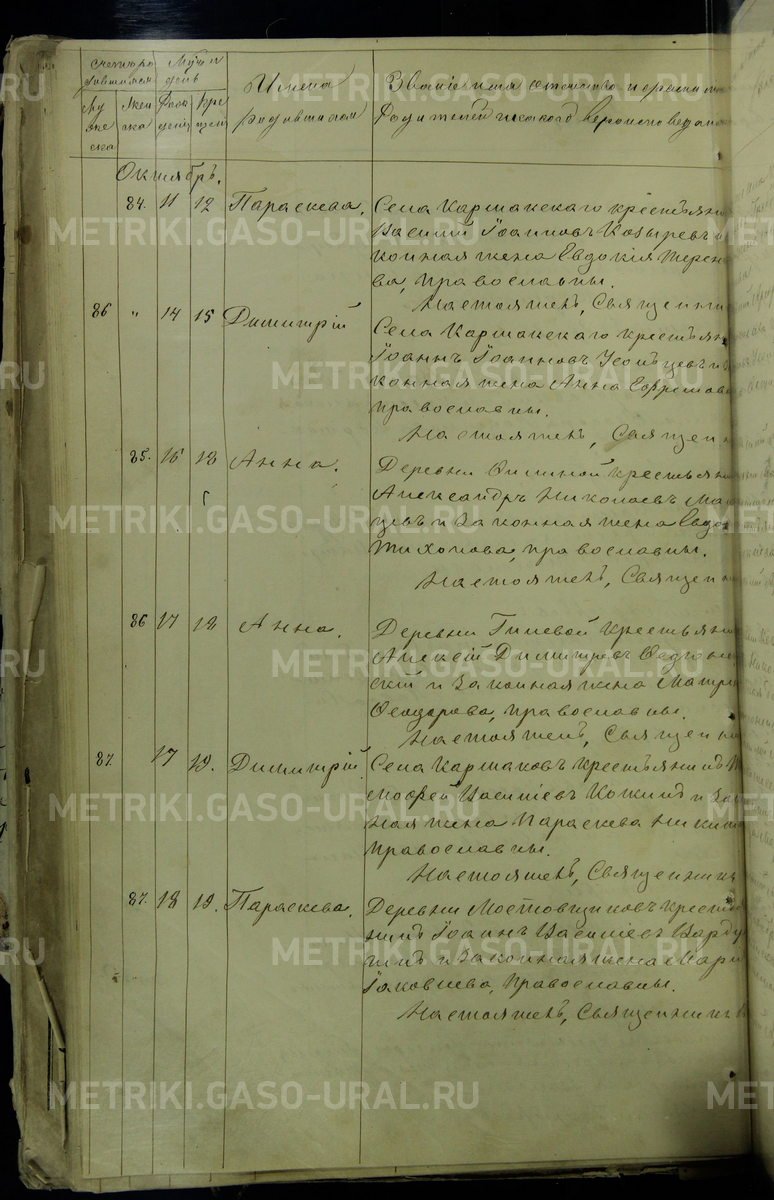 Счетъ ро
дившихся
Мѣсяцъ и
день
Му
же
ска
Жен
ска
Рож
денія
Кре
щен
Имена
родившихся
Званіе имя отчество и фамилія
Родителей и какого вероисповеданія
Октябрь.
84. 11 12 Параскева.
Села Каршакскаго крестьянинъ
Василій Іоанновъ Козыревъ и
конная жена Евдокія Терен
ва, православны.
Настоятель, Священникъ
86 " 14 15 Димитрій
Села Каршакскаго крестьян
Іоаннъ Іоанновъ Усольцевъ и
конная жена Анна Ефремова
православны.
Настоятель, Священ
85. 16 18 Анна.
Деревни крестьян
Александръ Николаевъ
цевъ и Законная жена Евдо
Тихонова, православны.
Настоятель, Священ
86 17 18 Анна.
Деревни Гилевой крестьян
Алексій Димитріевъ
скій и Законная жена Матре
Феодорова, православны.
Настоятель, Священ
87. 17 19. Димитрій
Села Каршаковъ крестьянинъ
мофей Василіевъ и Зак
ная жена Параскева Никит
православны.
Настоятель, Священникъ
87. 18 19. Параскева.
Деревни Мостовщиковъ крестья
нинъ Іоаннъ Василіевъ
и Законная жена Марі
Іаковлева, православны.
Настоятель, Священникъ
METRIKI.GASO-URAL.RU